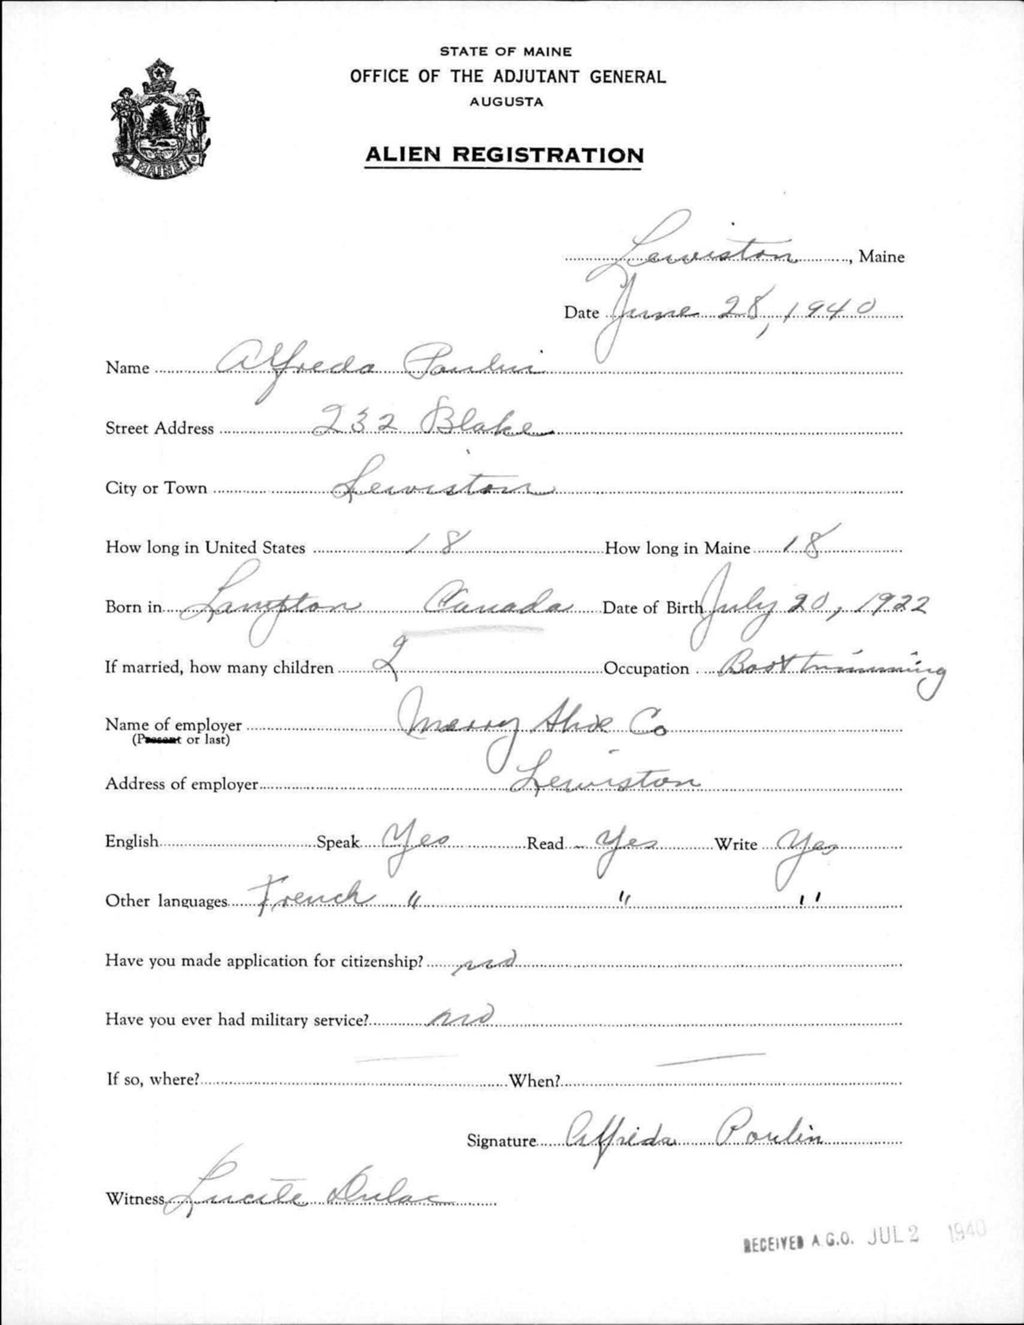 STATE OF MAINE
OFFICE OF THE ADJUTANT GENERAL
AUGUSTA
ALIEN REGISTRATION
MAINE
Lewiston, Maine
Date June 28, 1940
Name Alfreda Poulin
Street Address 232 Blake
City or Town Lewiston
How long in United States 18 How long in Maine 18
Born in Lampton Canada Date of Birth July 20, 1922
If married, how many children 2 Occupation Boot trimming
Name of employer Merry Shoe Co
(Present or last)
Address of employer Lewiston
English Speak Yes Read Yes Write Yes
Other languages French " " "
Have you made application for citizenship? no
Have you ever had military service? no
If so, where? — When? —
Signature Alfreda Poulin
Witness Lucile Dulac
RECEIVED A.G.O. JUL 2 1940